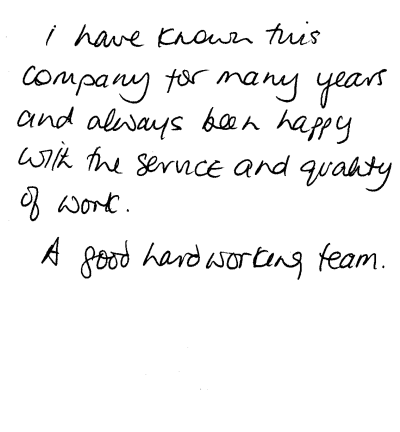 i have known this
company for many years
and always been happy
with the service and quality
of work.
A good hard working team.